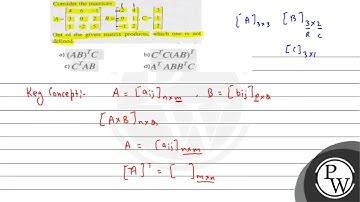 Consider the matrices
A = [4 6 -1; 3 0 2; 1 -2 5] B = [2 4; 0 1; -1 2] C = [3; 1; 2]
Out of the given matrix products, which one is not defined.
a) (AB)ᵀC b) CᵀC(AB)ᵀ
c) CᵀAB d) AᵀABBᵀC
[A]₃ₓ₃ [B]₃ₓ₂
R C
[C]₃ₓ₁
Key Concept:- A = [aij]nxm , B = [bij]pxq
[AxB]nxq
A = [aij]nxm
[A]ᵀ = [ ]mxn
PW